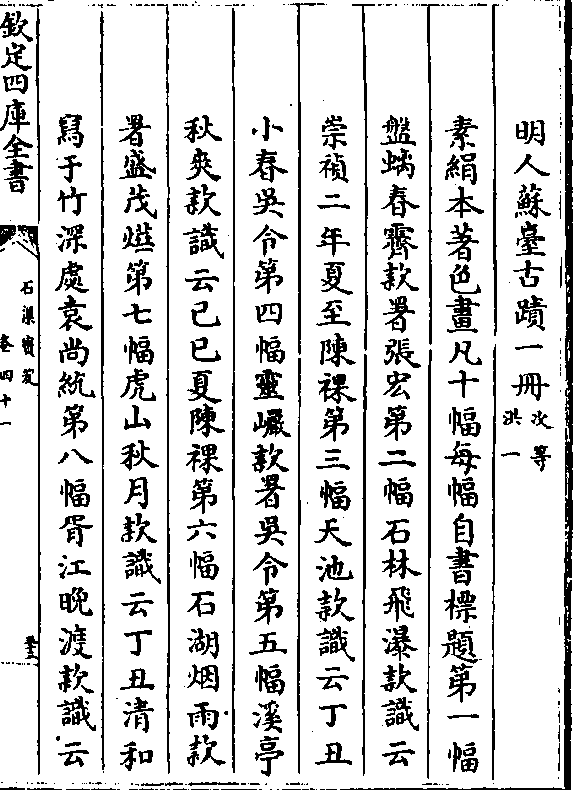 明人蘇臺古蹟一冊次等洪一
素絹本著色畫凡十幅每幅自書標題第一幅
盤螭春霽款署張宏第二幅石林飛瀑款識云
崇禎二年夏至陳裸第三幅天池款識云丁丑
小春吳令第四幅靈巗款署吳令第五幅溪亭
秋爽款識云己巳夏陳裸第六幅石湖烟雨款
署盛茂燁第七幅虎山秋月款識云丁丑清和
寫于竹深處袁尚統第八幅胥江晚渡款識云
欽定四庫全書
石渠寶笈
卷四十一